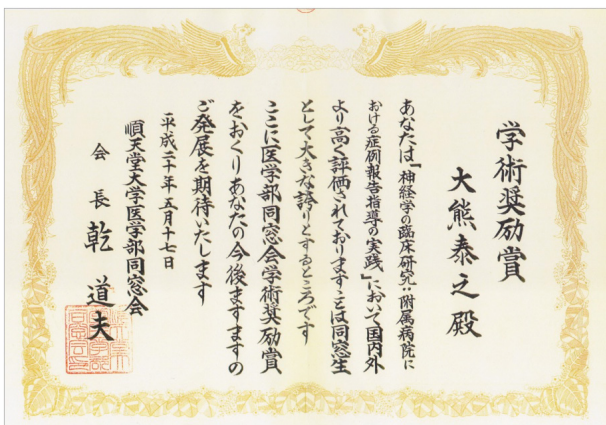 学術奨励賞
大熊泰之殿
あなたは「神経学の臨床研究:附属病院に
おける症例報告指導の実践」において国内外
より高く評価されておりますことは同窓生
として大きな誇りとするところです
ここに医学部同窓会学術奨励賞
をおくりあなたの今後ますますの
ご発展を期待いたします
平成二十年五月十七日
順天堂大学医学部同窓会
会長 乾道夫